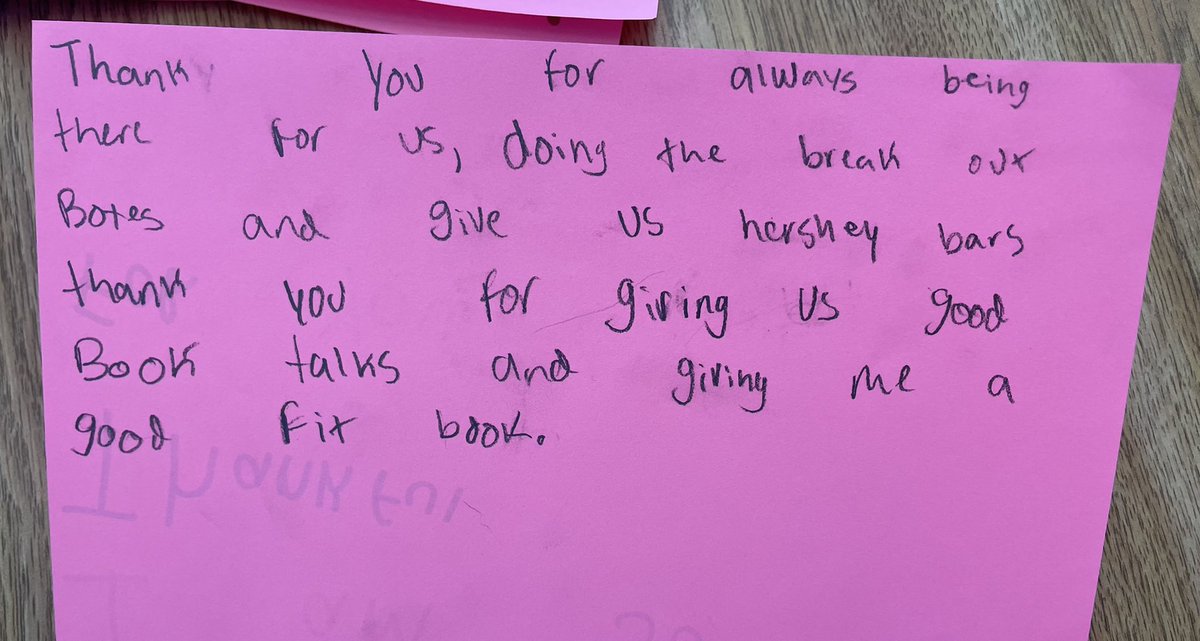 Thank you for always being
there for us, doing the break out
Boxes and give us hershey bars
thank you for giving us good
Book talks and giving me a
good fit book.
Thankful
I am so